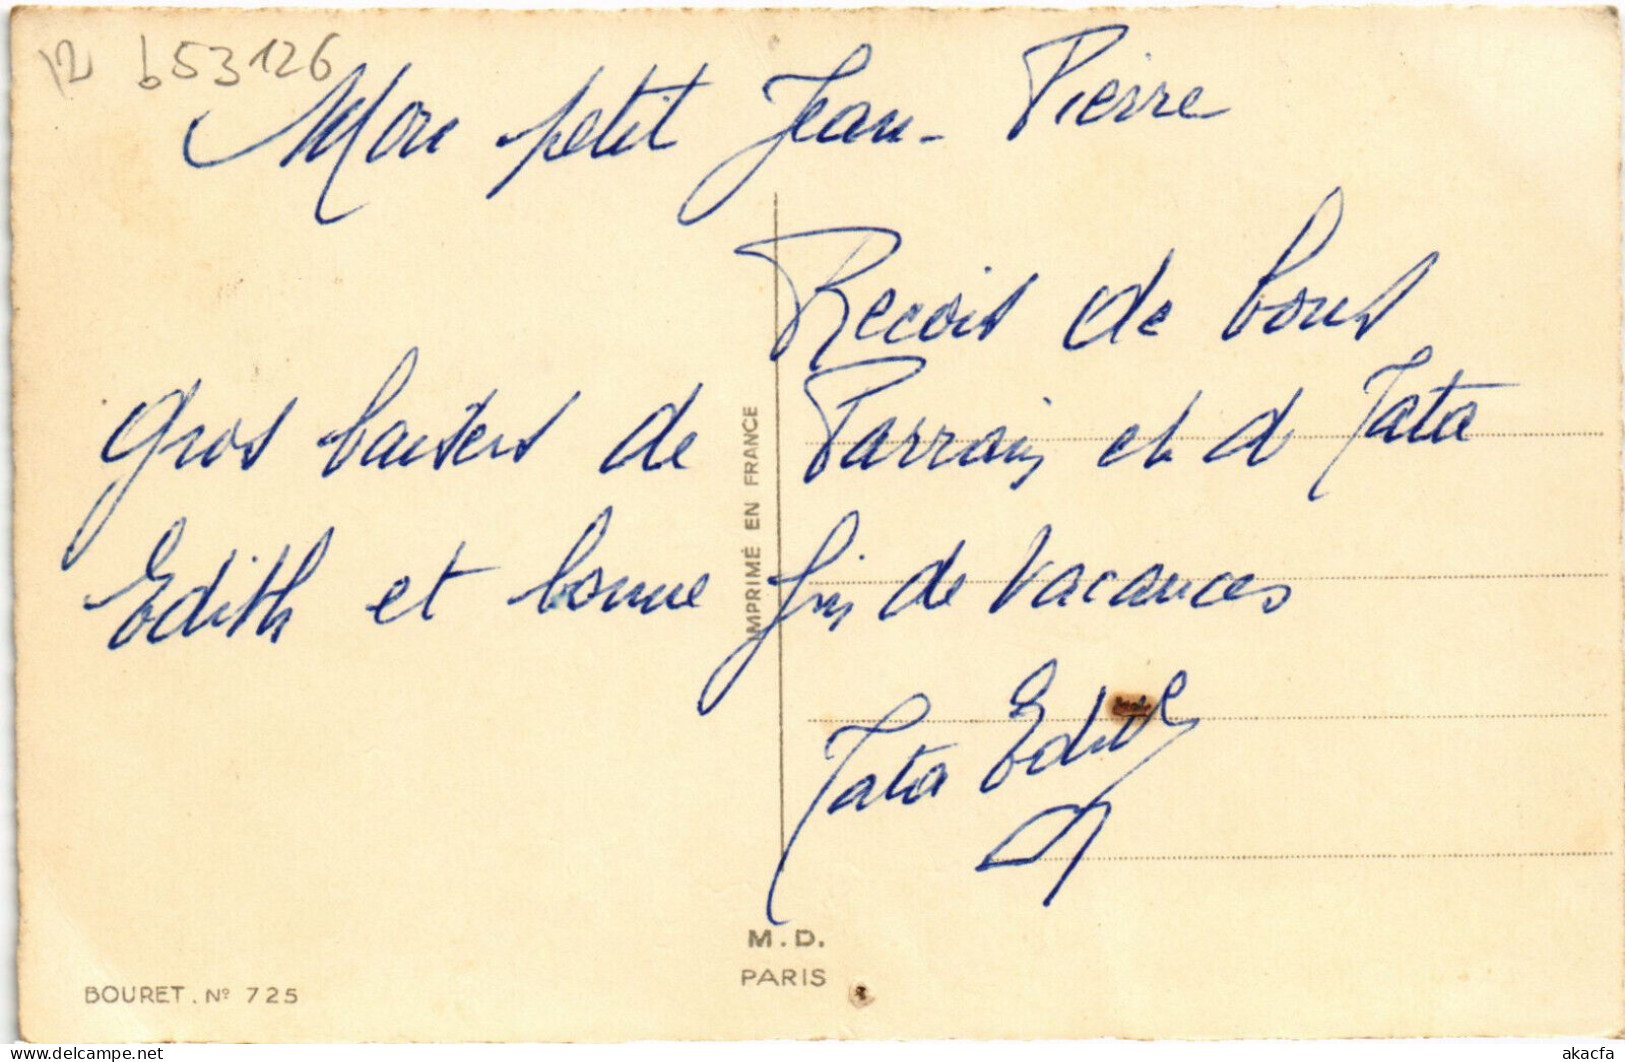 12 b53126
Mon petit Jean-Pierre
Recois de bons
gros baisers de Parrain et de Tata
Edith et bonne fin de vacances
Tata Edith
IMPRIMÉ EN FRANCE
M.D.
PARIS
BOURET. Nº 725
delcampe.net
akacfa